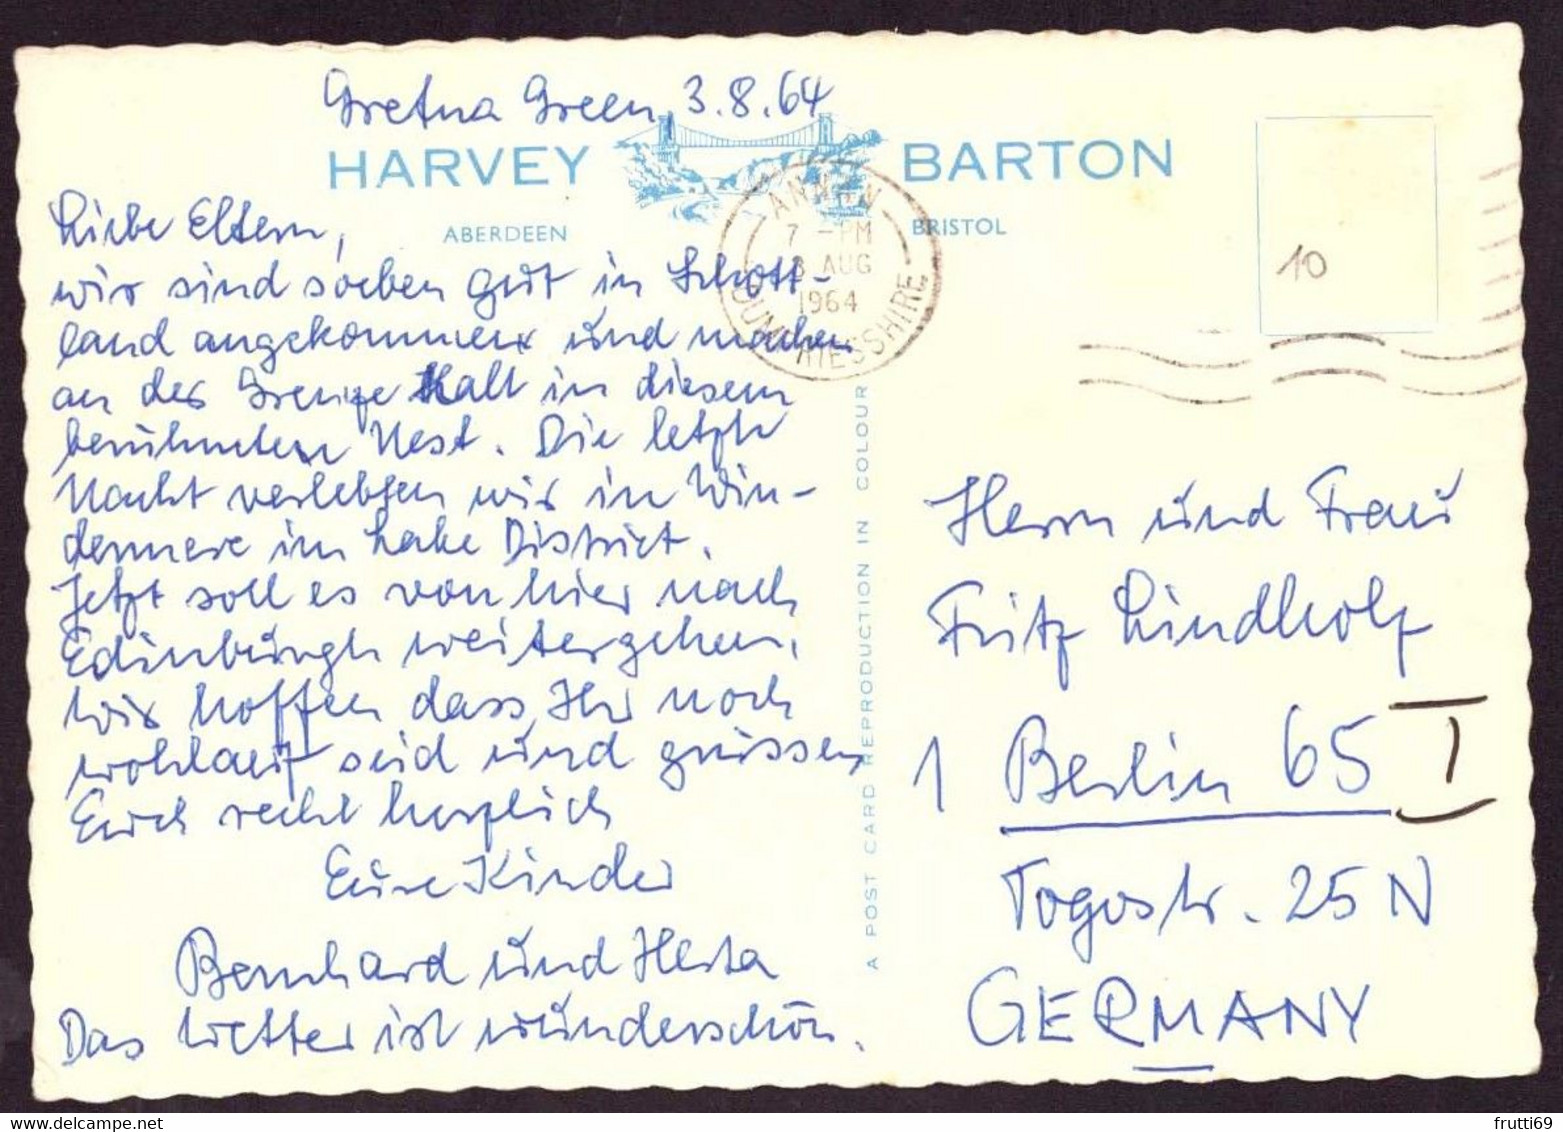 Gretna Green, 3.8.64
HARVEY BARTON
ABERDEEN BRISTOL
ANNAN
7 - PM
3 AUG
1964
DUMFRIESSHIRE
10
Liebe Eltern,
wir sind soeben gut in Schott-
land angekommen und machen
an der Grenze Halt in diesem
berühmten Nest. Die letzte
Nacht verlebten wir in Win-
dermere im Lake District.
Jetzt soll es von hier nach
Edinburgh weitergehen.
Wir hoffen dass Ihr noch
wohlauf seid und grüssen
Euch recht herzlich
Eure Kinder
Bernhard und Herta
Das Wetter ist wunderschön.
A POST CARD REPRODUCTION IN COLOUR
Herrn und Frau
Fritz Lindholz
1 Berlin 65 I
Togostr. 25 N
GERMANY
frutti69